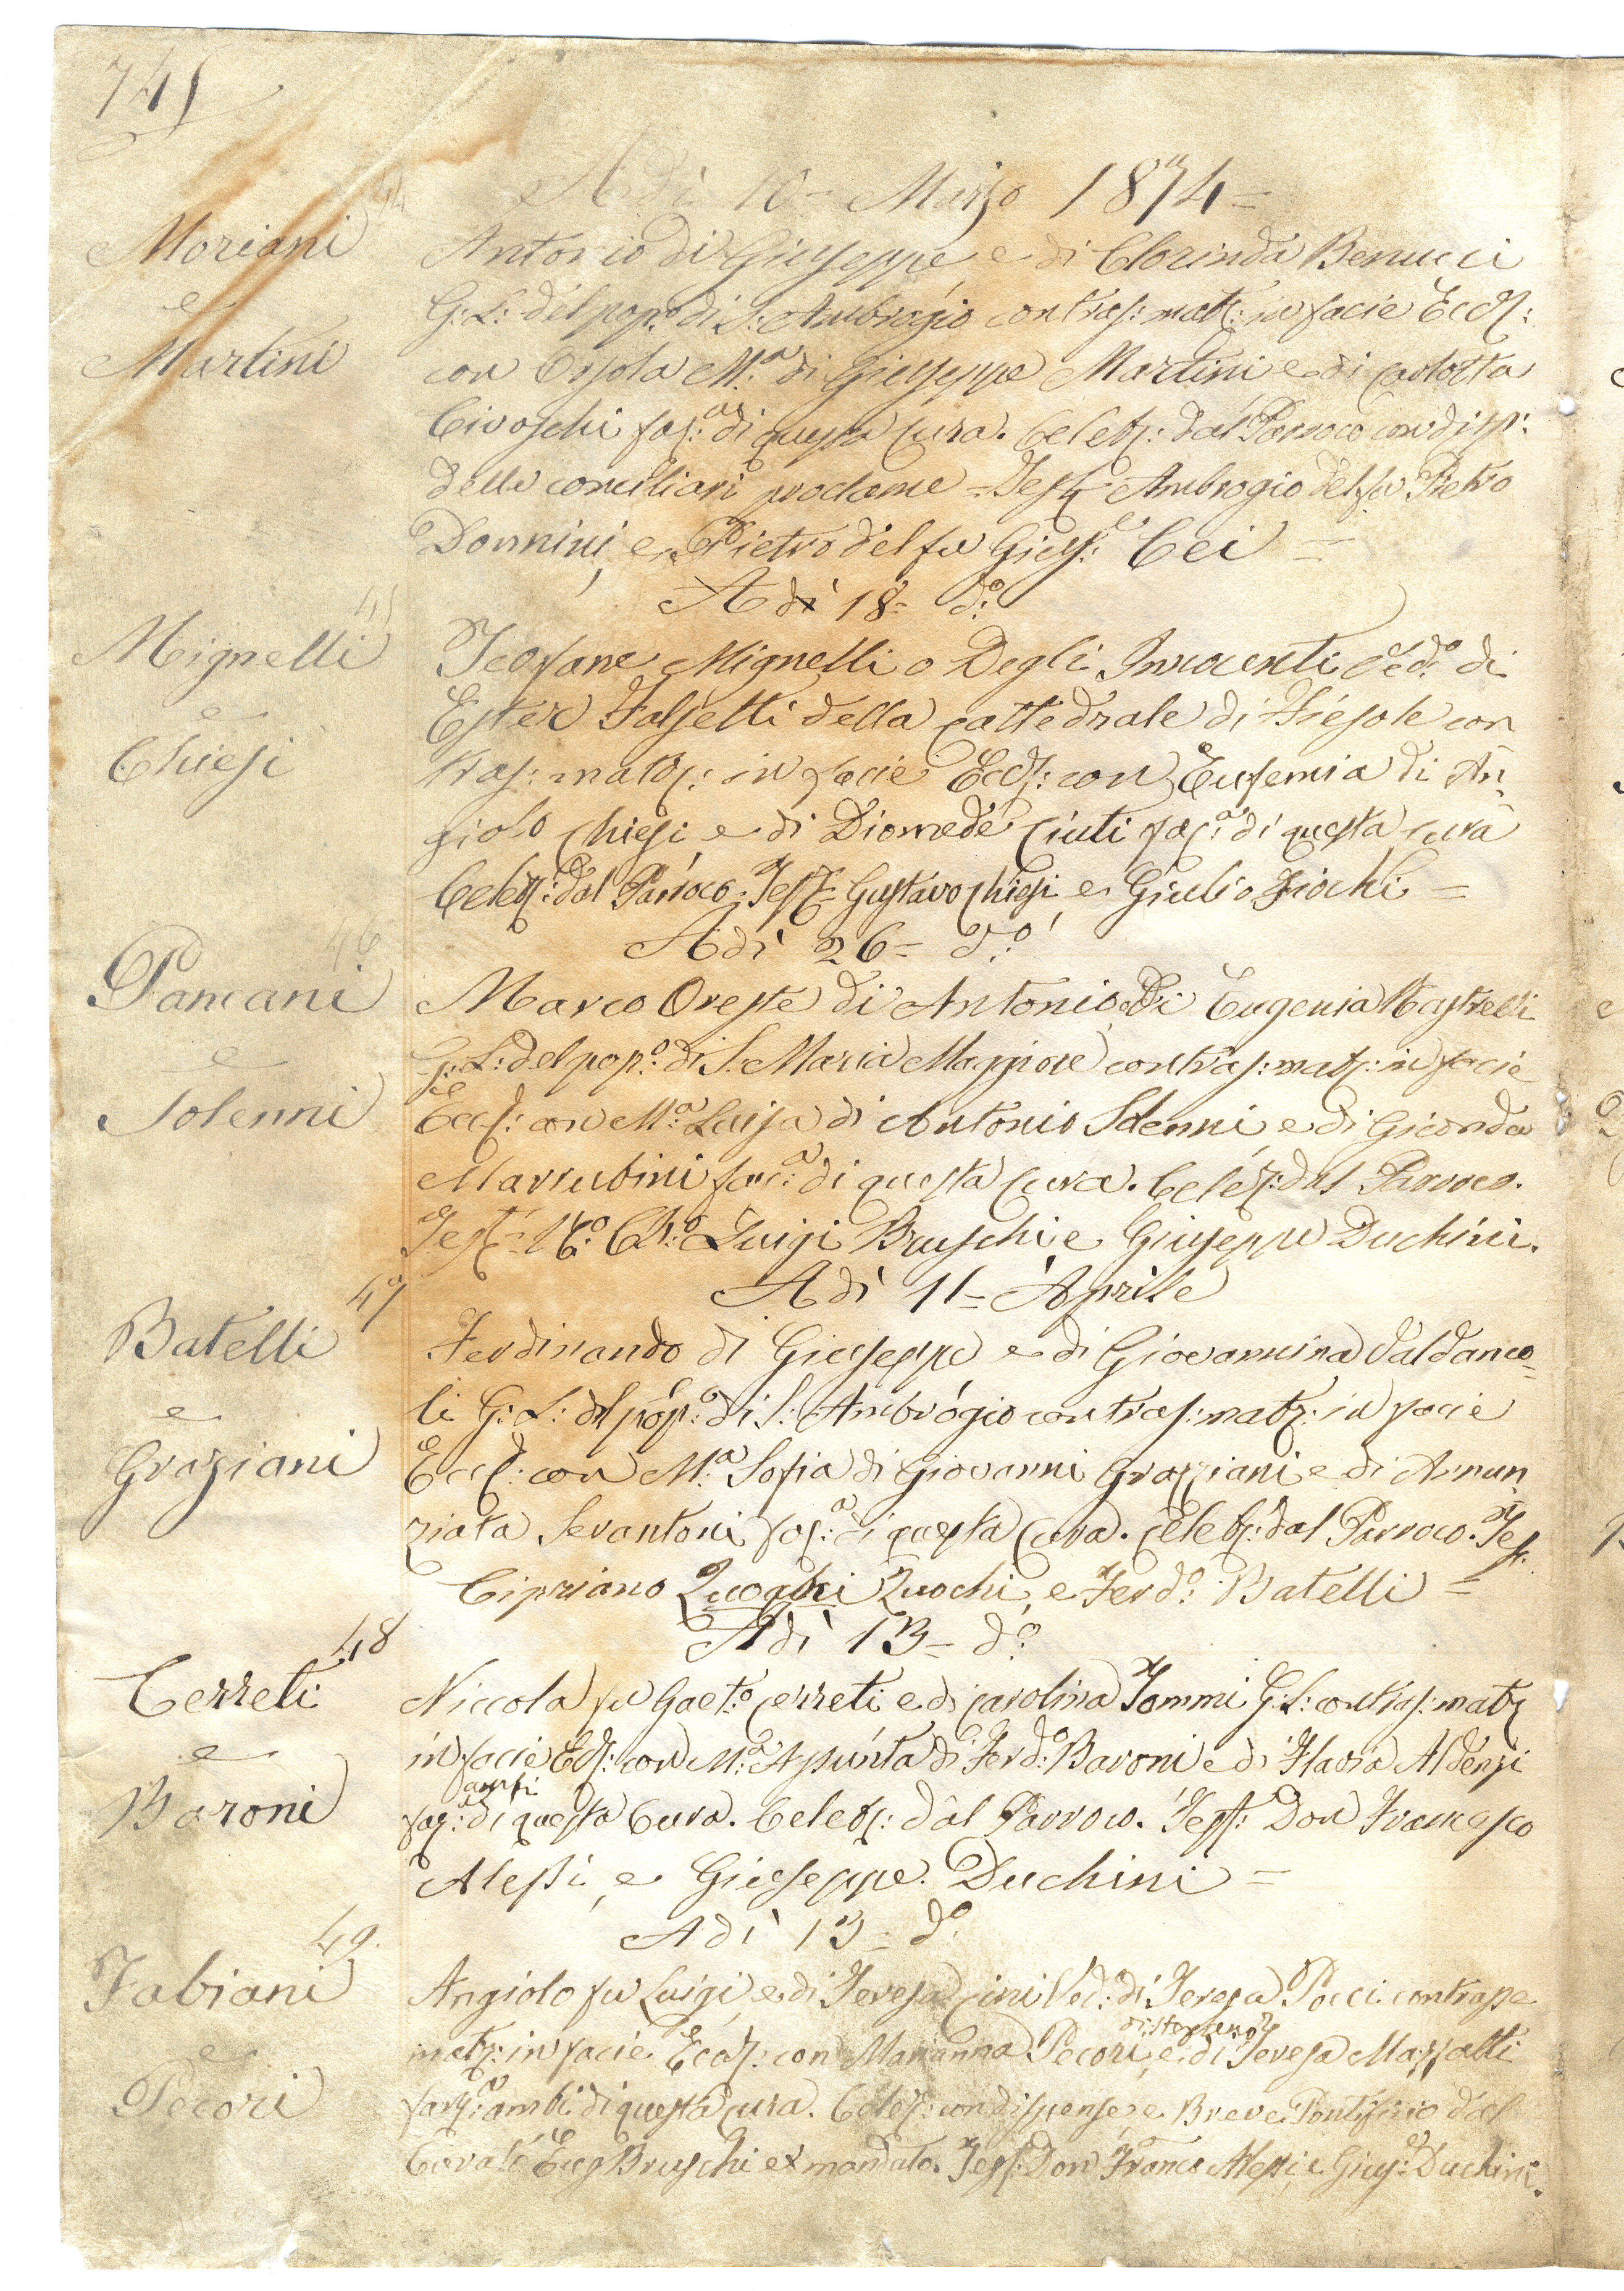 745
Adì 10 = Marzo 1874 =
44
Moriani
e
Martini
Antonio di Giuseppe e di Clorinda Benucci
G: L: del pop.o di S: Ambrogio contras: matr: in facie Eccl:
con Ersola M.a di Giuseppe Martini e di Carlotta
Civoschi fac:a di questa Cura. Celebr: dal Parroco con disp:
delle conciliari proclame = Test: Ambrogio del fu Pietro
Donnini, e Pietro del fu Gius:e Cei =
Adì 18 = d.o
45
Mignelli
e
Chiesi
Teofane Mignelli o Degli Innocenti Ved.o di
Ester Falsetti della Cattedrale di Fiesole con
tras: matr: in facie Eccl: con Eufemia di An
giolo Chiesi e di Diomede Ciuti fac:a di questa Cura
Celebr: dal Parroco. Test: Gustavo Chiesi e Giulio Fiochi =
Adì 26 = d.o
46
Pancani
e
Solenni
Marco Oreste di Antonio e di Eugenia Mastrelli
G: L: del pop.o di S. Maria Maggiore contras: matr: in facie
Eccl: con M.a Luisa di Antonio Solenni e di Gioconda
Marrubini fac:a di questa Cura. Celebr: dal Parroco.
Test: Luigi Bruschi e Giuseppe Duchini.
Adì 11 = Aprile
47
Batelli
e
Graziani
Ferdinando di Giuseppe e di Giovannina Valdanco=
li G: L: del pop:o di S: Ambrogio contras: matr: in facie
Eccl: con M.a Sofia di Giovanni Graziani e di Annun
ziata Servantoni fac:a di questa Cura. Celebr: dal Parroco. Tes:
Cipriano Quochi, e Ferd.o Batelli =
Adì 13 = d.o
48
Cerreti
e
Baroni
Niccola fu Gaet.o Cerreti e di Carolina Tommi G: L: contras: matr
in facie Eccl: con M.a Assunta di Ferd.o Baroni e di Flavia Aldenzi
ambi
fac:a di questa Cura. Celebr: dal Parroco. Test: Don Francesco
Alessi, e Giuseppe Duchini =
Adì 13 = d.o
49.
Fabiani
e
Pecori
Angiolo fu Luigi, e di Teresa Cini Ved.o di Teresa Pocci contrasse
matr: in facie Eccl: con Marianna Pecori, e di Teresa Mazzatti
fac:a ambi di questa Cura. Celebr: con dispense, e Breve Pontificio dal
Curato Eug Bruschi ex mandato. Test: Don Franco Alessi, e Gius:e Duchini.